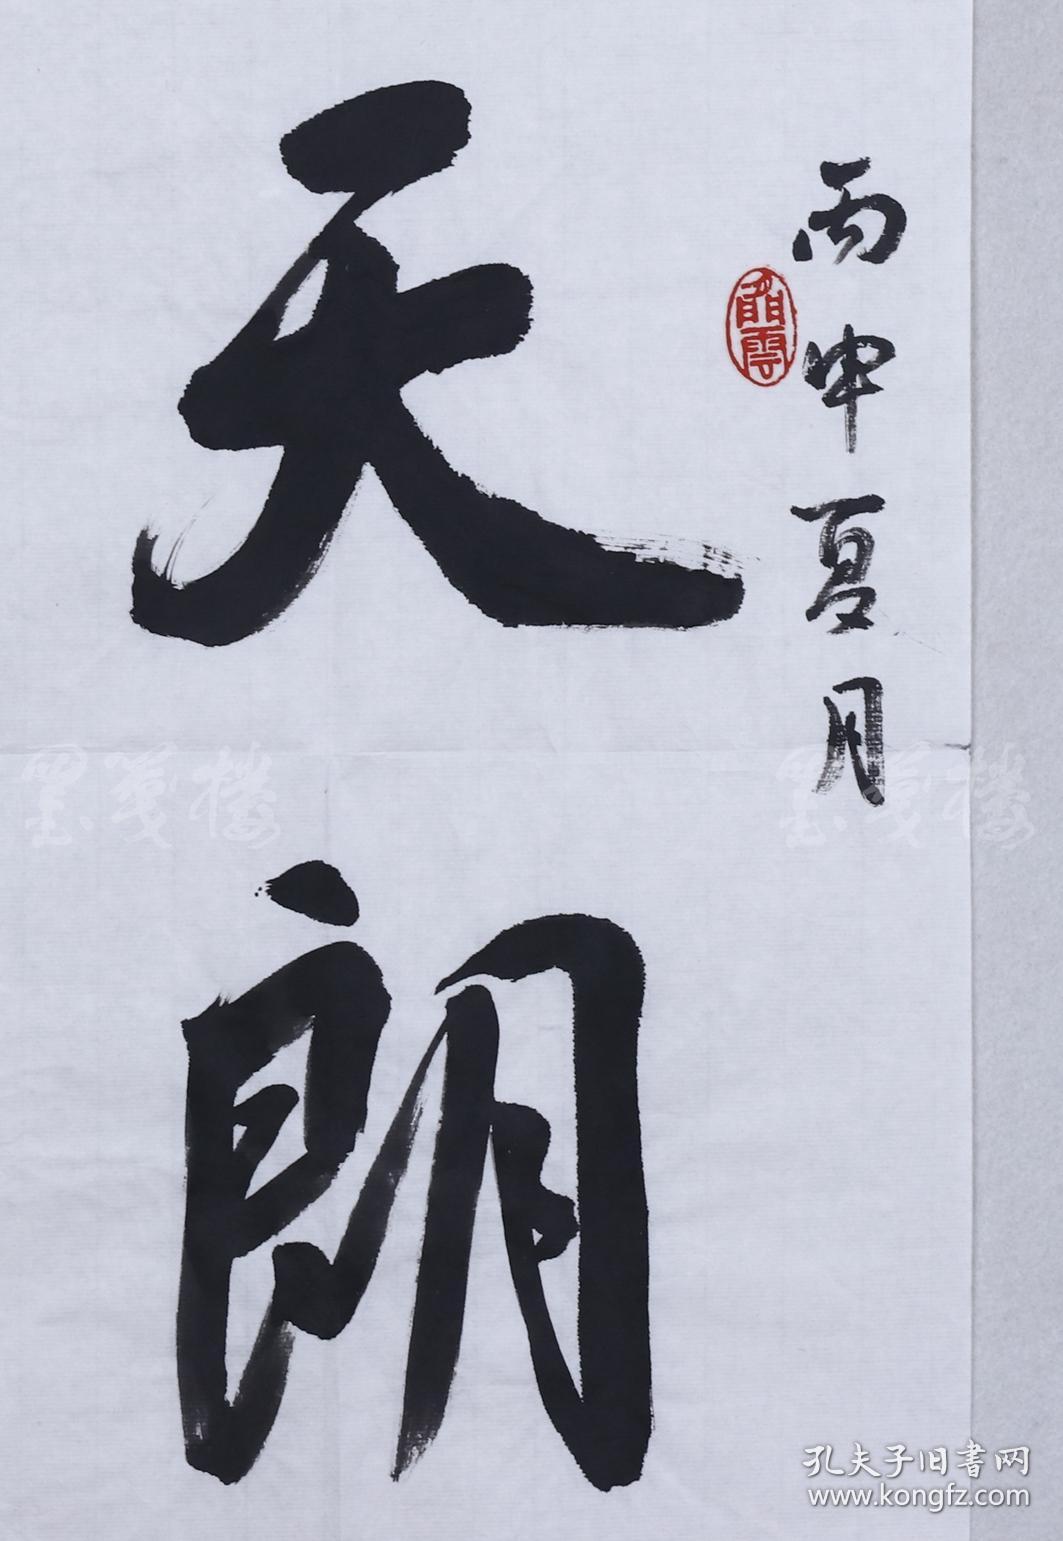 丙申夏月
天朗
墨笺楼
墨笺楼
孔夫子旧书网
www.kongfz.com